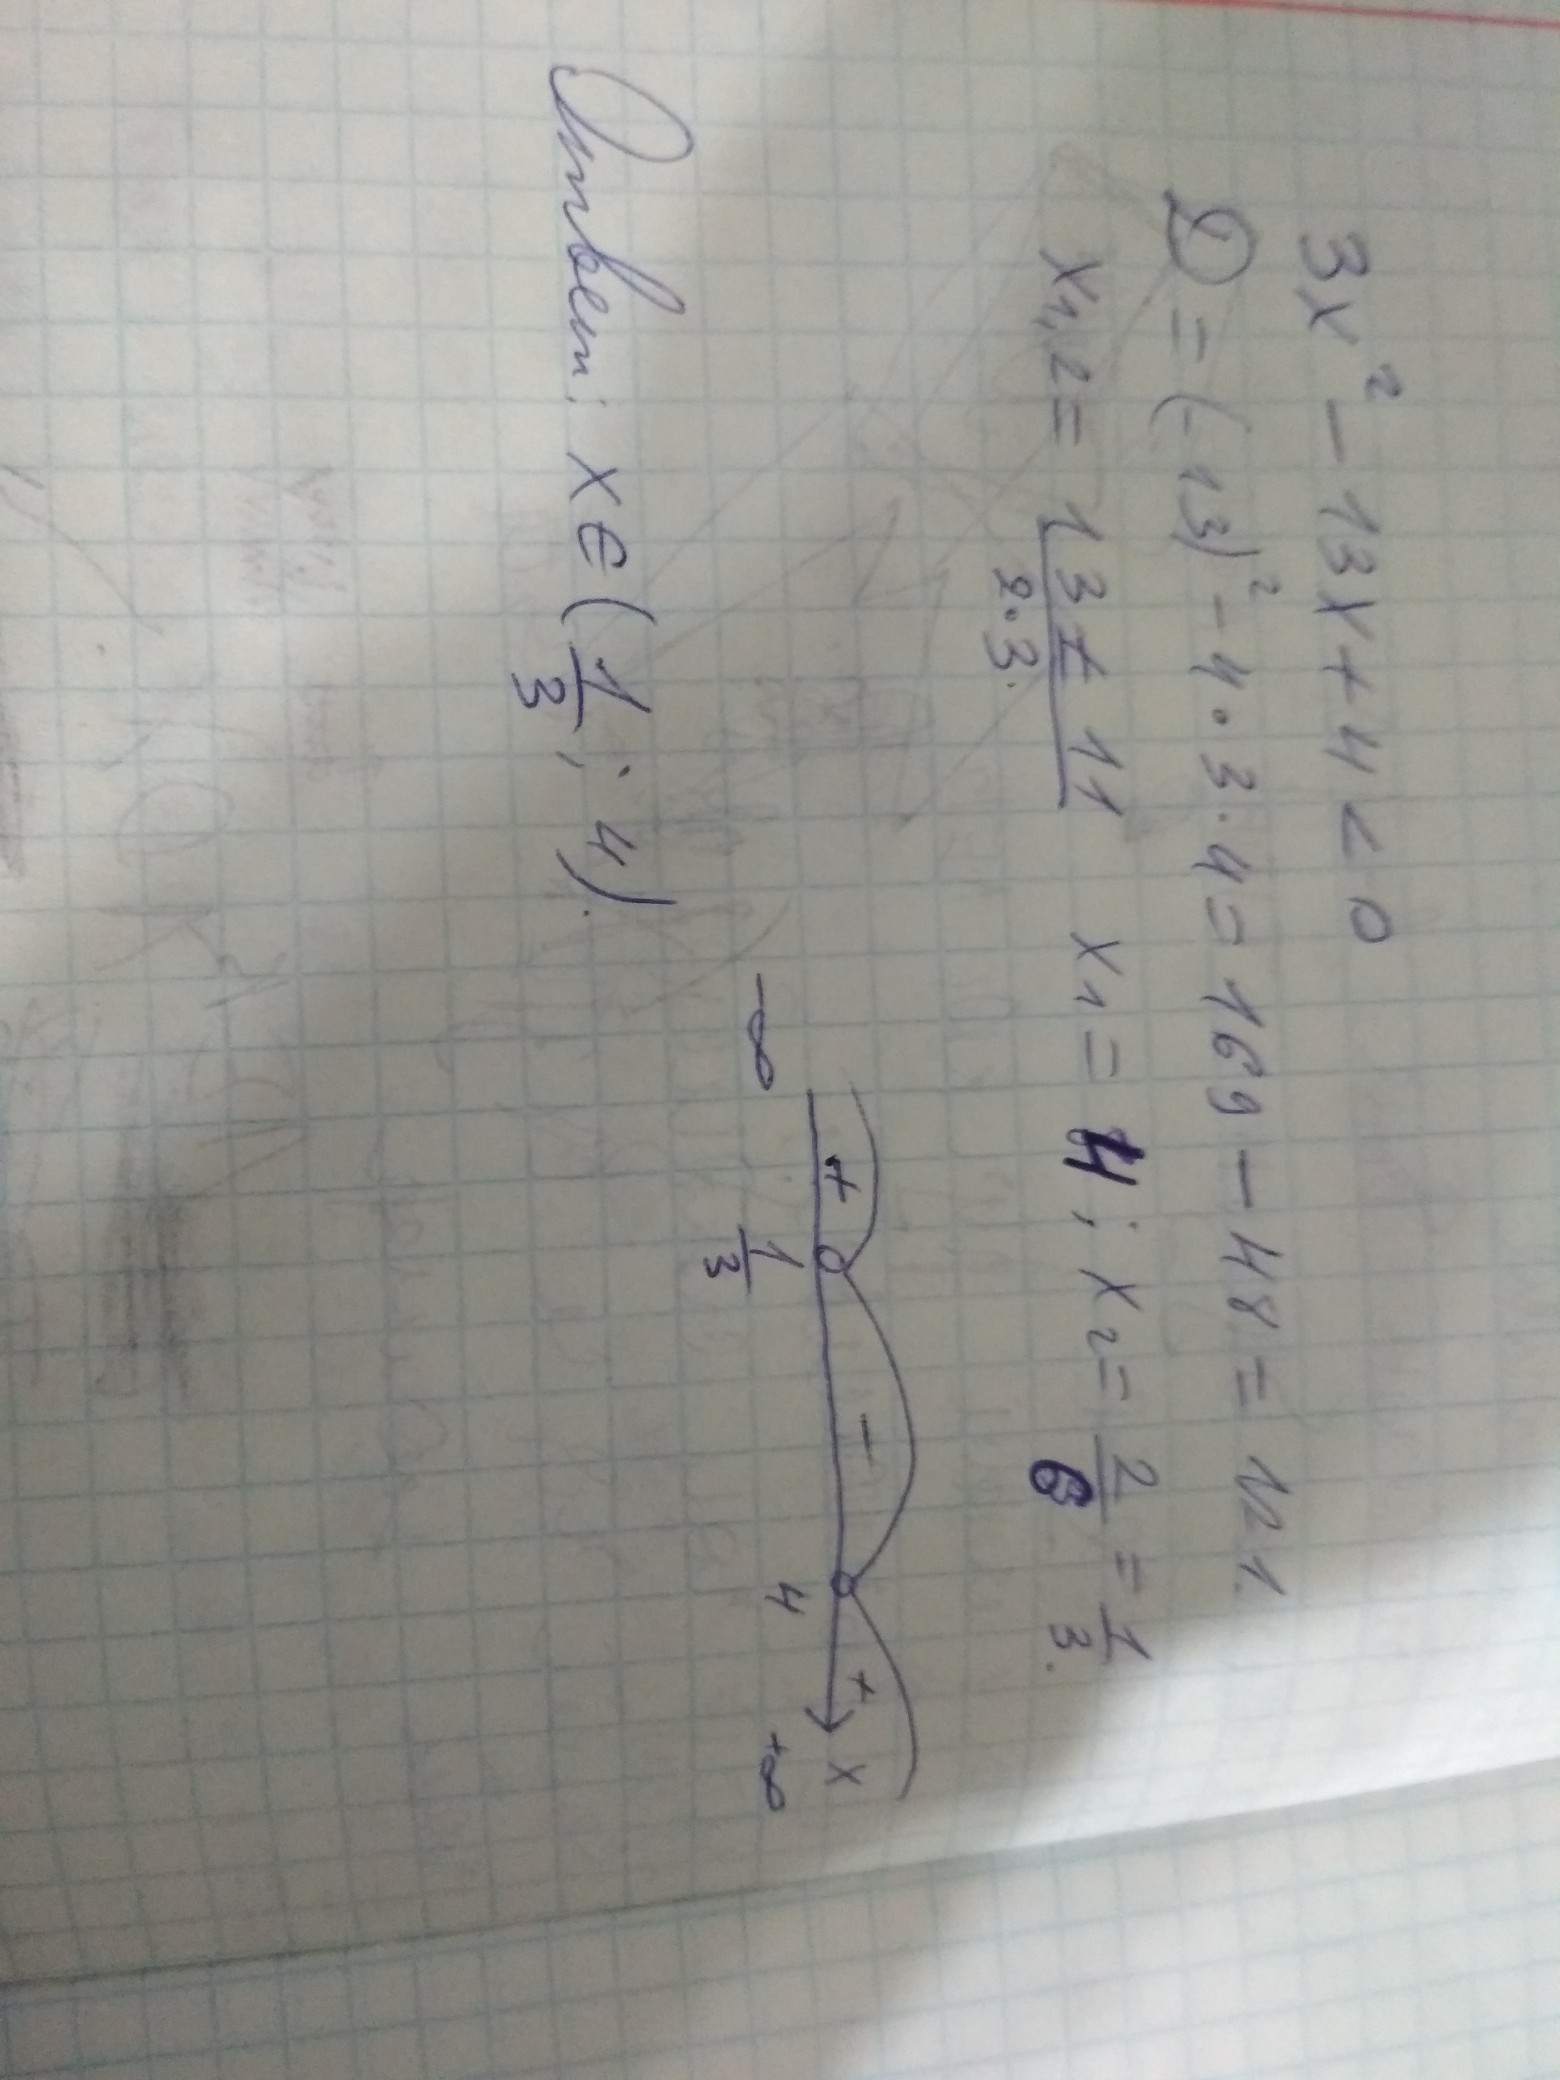 3x² - 13x + 4 < 0
D = (-13)² - 4 · 3 · 4 = 169 - 48 = 121.
x₁,₂ = (13 ± 11)/(2·3) x₁ = 4; x₂ = 2/6 = 1/3.
+ - + x
-∞ 1/3 4 +∞
Ответ: x ∈ (1/3; 4).